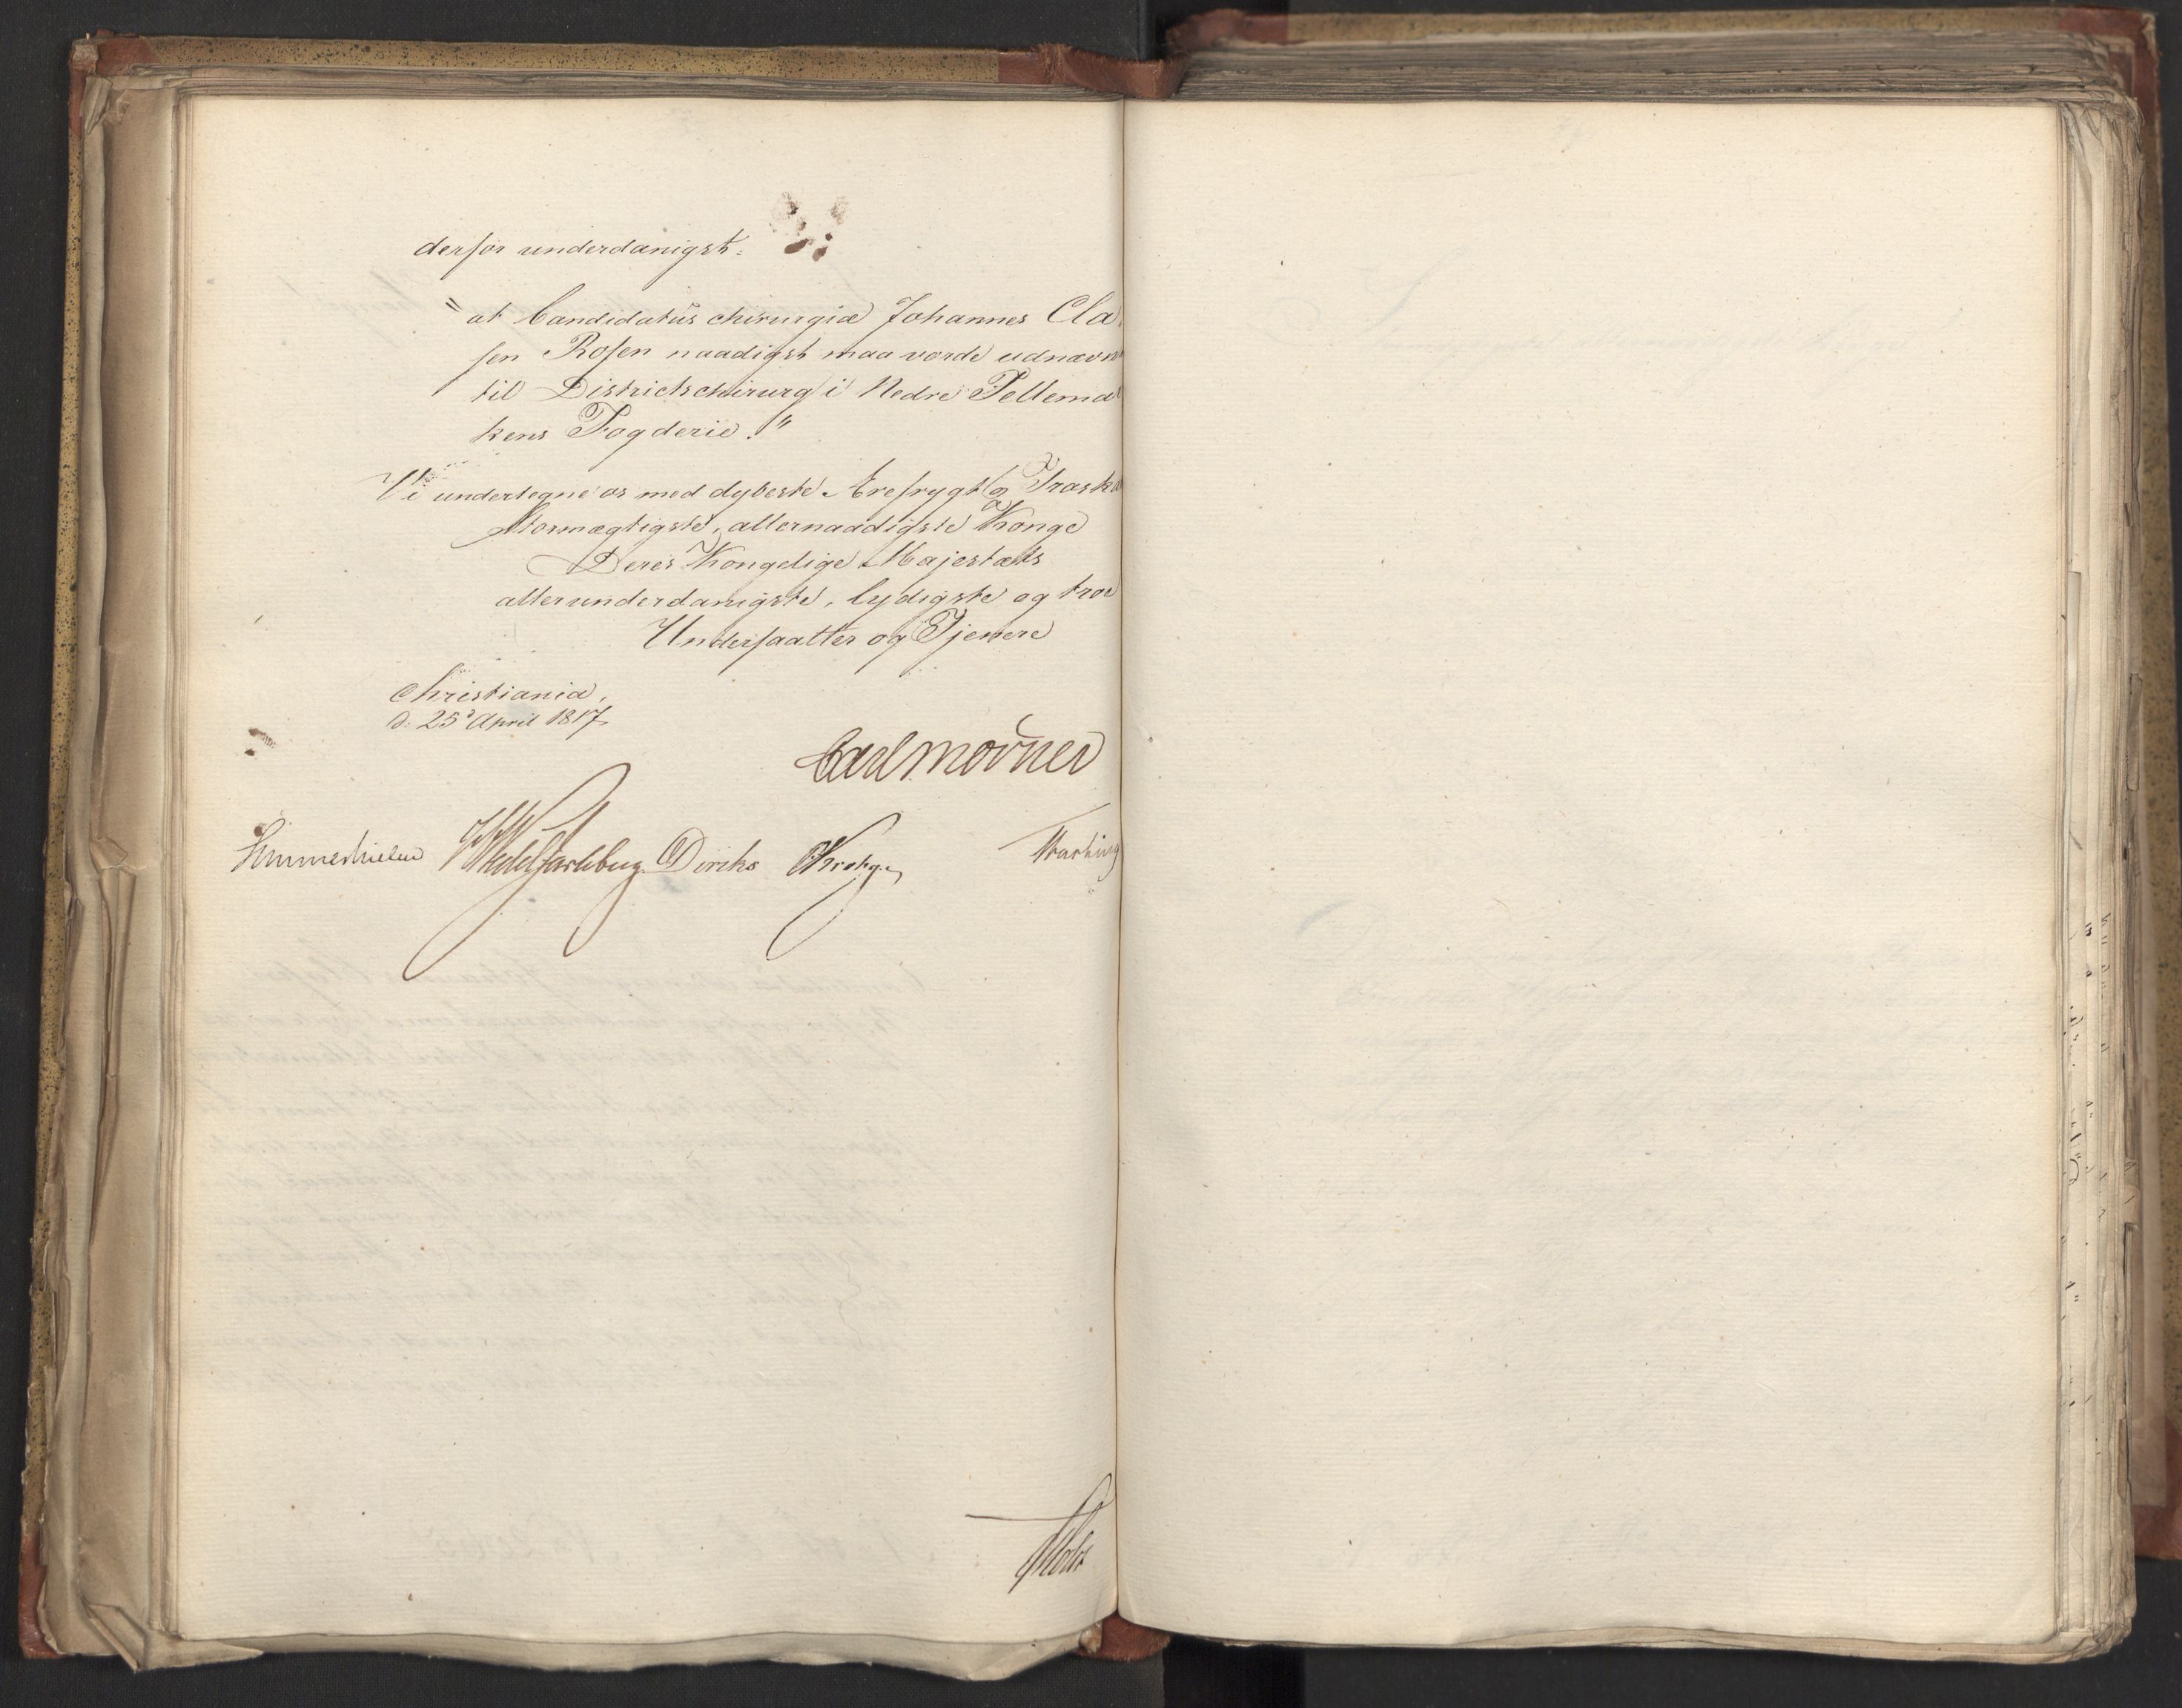 derfor underdanigst:
"at Candidatus chirurgiæ Johannes Cla
sen Rosen naadigst maa vorde udnævn
til Districtschirurg i Nedre Tellema
kens Fogderie."
Vi undertegne os med dybeste Ærefrygt og Troska
Stormægtigste, allernaadigste Konge
Deres Kongelige Majestæts
allerunderdanigste, lydigste og troe
Undersaatter og Tjenere
Christiania,
d: 25d April 1817
Carl Mörner
Sommerhielm Wedel Jarlsberg Diriks Krohg Motzfeldt
Holst